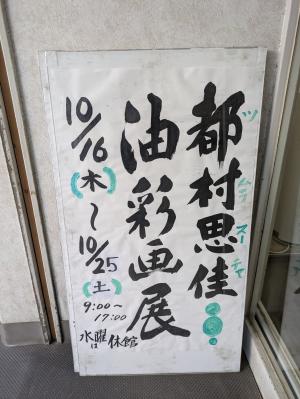 都村思佳
ツムラスーチャ
油彩画展
10/16
(木)
〜
10/25
(土)
9:00〜
17:00
水曜日休館